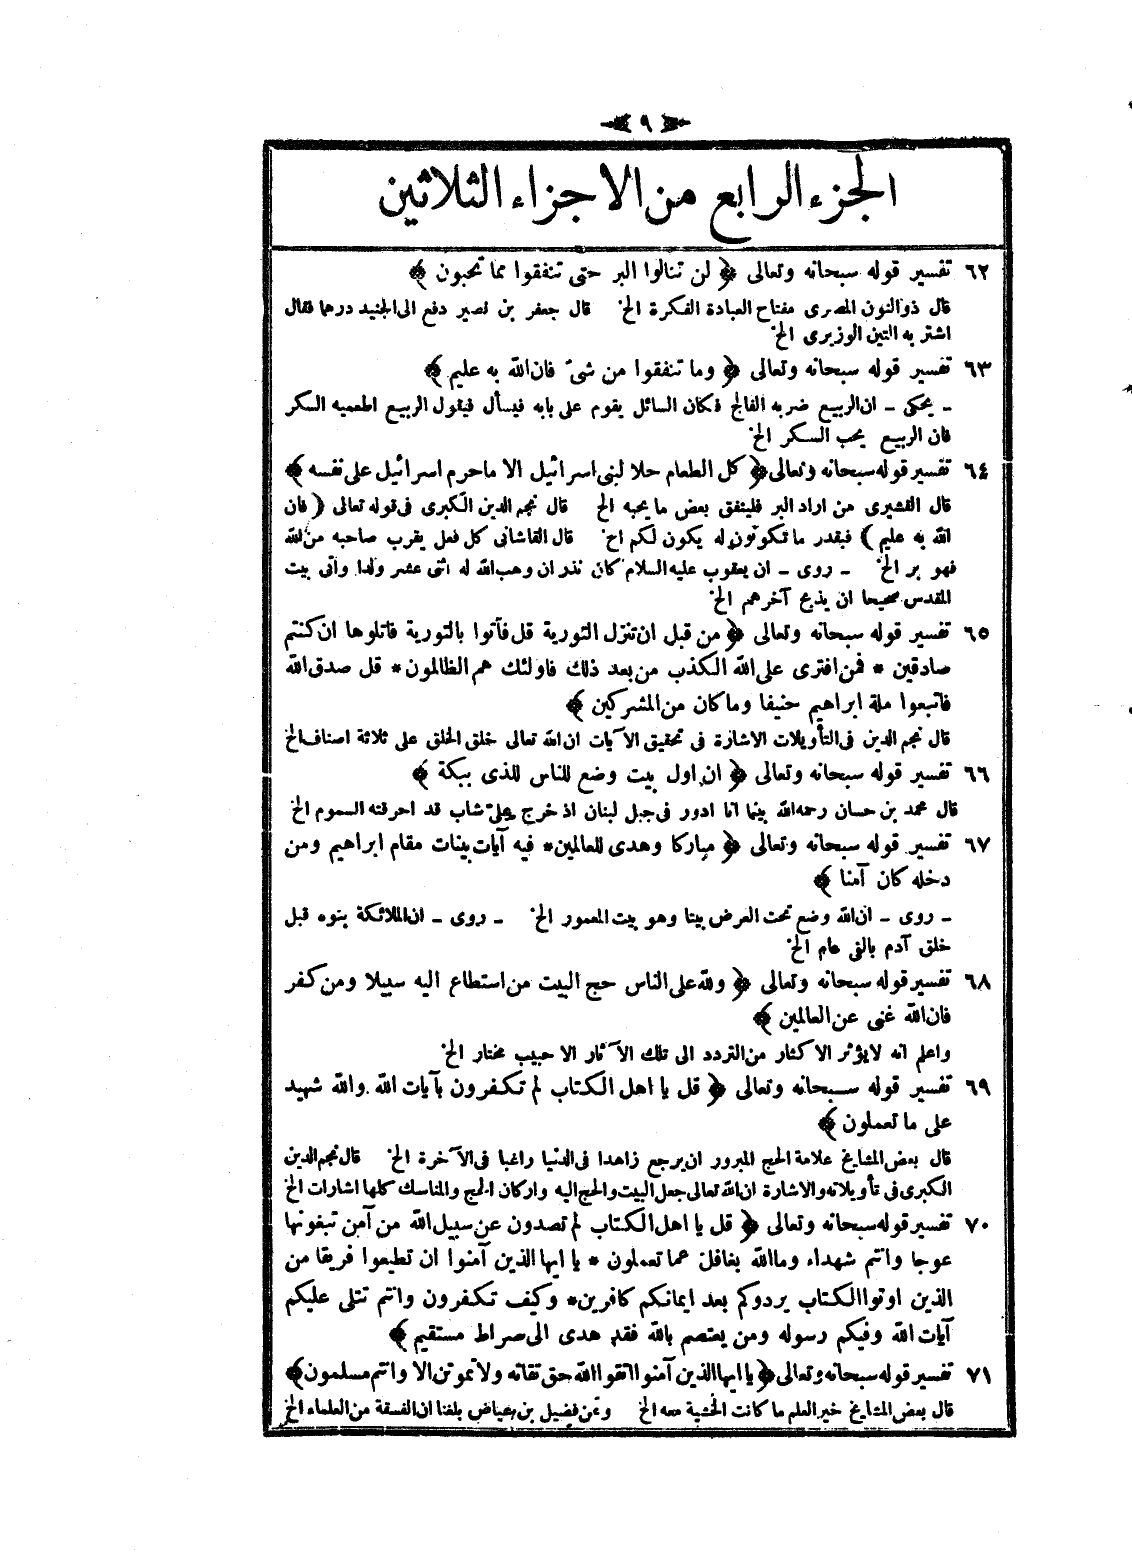 ٩
الجزء الرابع من الاجزاء الثلاثين
٦٢ تفسير قوله سبحانه وتعالى ﴿ لن تنالوا البر حتى تنفقوا مما تحبون ﴾
قال ذوالنون المصرى مفتاح العبادة الفكرة الخ قال جعفر بن نصير دفع الى الجنيد درهما فقال
اشتر به التين الوزيرى الخ
٦٣ تفسير قوله سبحانه وتعالى ﴿ وما تنفقوا من شىء فان الله به عليم ﴾
ـ يحكى ـ ان الربيع ضربه الفالج فكان السائل يقوم على بابه فيسأل فيقول الربيع اطعميه السكر
فان الربيع يحب السكر الخ
٦٤ تفسير قوله سبحانه وتعالى ﴿ كل الطعام حلا لبنى اسرائيل الا ما حرم اسرائيل على نفسه ﴾
قال القشيرى من اراد البر فلينفق بعض ما يحبه الخ قال نجم الدين الكبرى فى قوله تعالى ( فان
الله به عليم ) فبقدر ما تكونون له يكون لكم اخ قال القاشانى كل فعل يقرب صاحبه من الله
فهو بر الخ ـ روى ـ ان يعقوب عليه السلام كان نذر ان وهب الله له اثنى عشر ولدا واتى بيت
المقدس صحيحا ان يذبح آخرهم الخ
٦٥ تفسير قوله سبحانه وتعالى ﴿ من قبل ان تنزل التورية قل فأتوا بالتورية فاتلوها ان كنتم
صادقين * فمن افترى على الله الكذب من بعد ذلك فاولئك هم الظالمون * قل صدق الله
فاتبعوا ملة ابراهيم حنيفا وما كان من المشركين ﴾
قال نجم الدين فى التأويلات الاشارة فى تحقيق الآيات ان الله تعالى خلق الخلق على ثلاثة اصناف الخ
٦٦ تفسير قوله سبحانه وتعالى ﴿ ان اول بيت وضع للناس للذى ببكة ﴾
قال محمد بن حسان رحمه الله بينما انا ادور فى جبل لبنان اذ خرج على شاب قد احرقته السموم الخ
٦٧ تفسير قوله سبحانه وتعالى ﴿ مباركا وهدى للعالمين * فيه آيات بينات مقام ابراهيم ومن
دخله كان آمنا ﴾
ـ روى ـ ان الله وضع تحت العرض بيتا وهو بيت المعمور الخ ـ روى ـ ان الملائكة بنوه قبل
خلق آدم بالفى عام الخ
٦٨ تفسير قوله سبحانه وتعالى ﴿ ولله على الناس حج البيت من استطاع اليه سبيلا ومن كفر
فان الله غنى عن العالمين ﴾
واعلم انه لا يؤثر الاكثار من التردد الى تلك الآثار الا حبيب مختار الخ
٦٩ تفسير قوله سبحانه وتعالى ﴿ قل يا اهل الكتاب لم تكفرون بآيات الله والله شهيد
على ما تعملون ﴾
قال بعض المشايخ علامة الحج المبرور ان يرجع زاهدا فى الدنيا راغبا فى الآخرة الخ قال نجم الدين
الكبرى فى تأويلاته والاشارة ان الله تعالى جعل البيت والحج اليه واركان الحج والمناسك كلها اشارات الخ
٧٠ تفسير قوله سبحانه وتعالى ﴿ قل يا اهل الكتاب لم تصدون عن سبيل الله من آمن تبغونها
عوجا وانتم شهداء وما الله بغافل عما تعملون * يا ايها الذين آمنوا ان تطيعوا فريقا من
الذين اوتوا الكتاب يردوكم بعد ايمانكم كافرين * وكيف تكفرون وانتم تتلى عليكم
آيات الله وفيكم رسوله ومن يعتصم بالله فقد هدى الى صراط مستقيم ﴾
٧١ تفسير قوله سبحانه وتعالى ﴿ يا ايها الذين آمنوا اتقوا الله حق تقاته ولا تموتن الا وانتم مسلمون ﴾
قال بعض المشايخ خير العلم ما كانت الخشية معه الخ وعن فضيل بن عياض بلغنا ان الفسقة من العلماء الخ